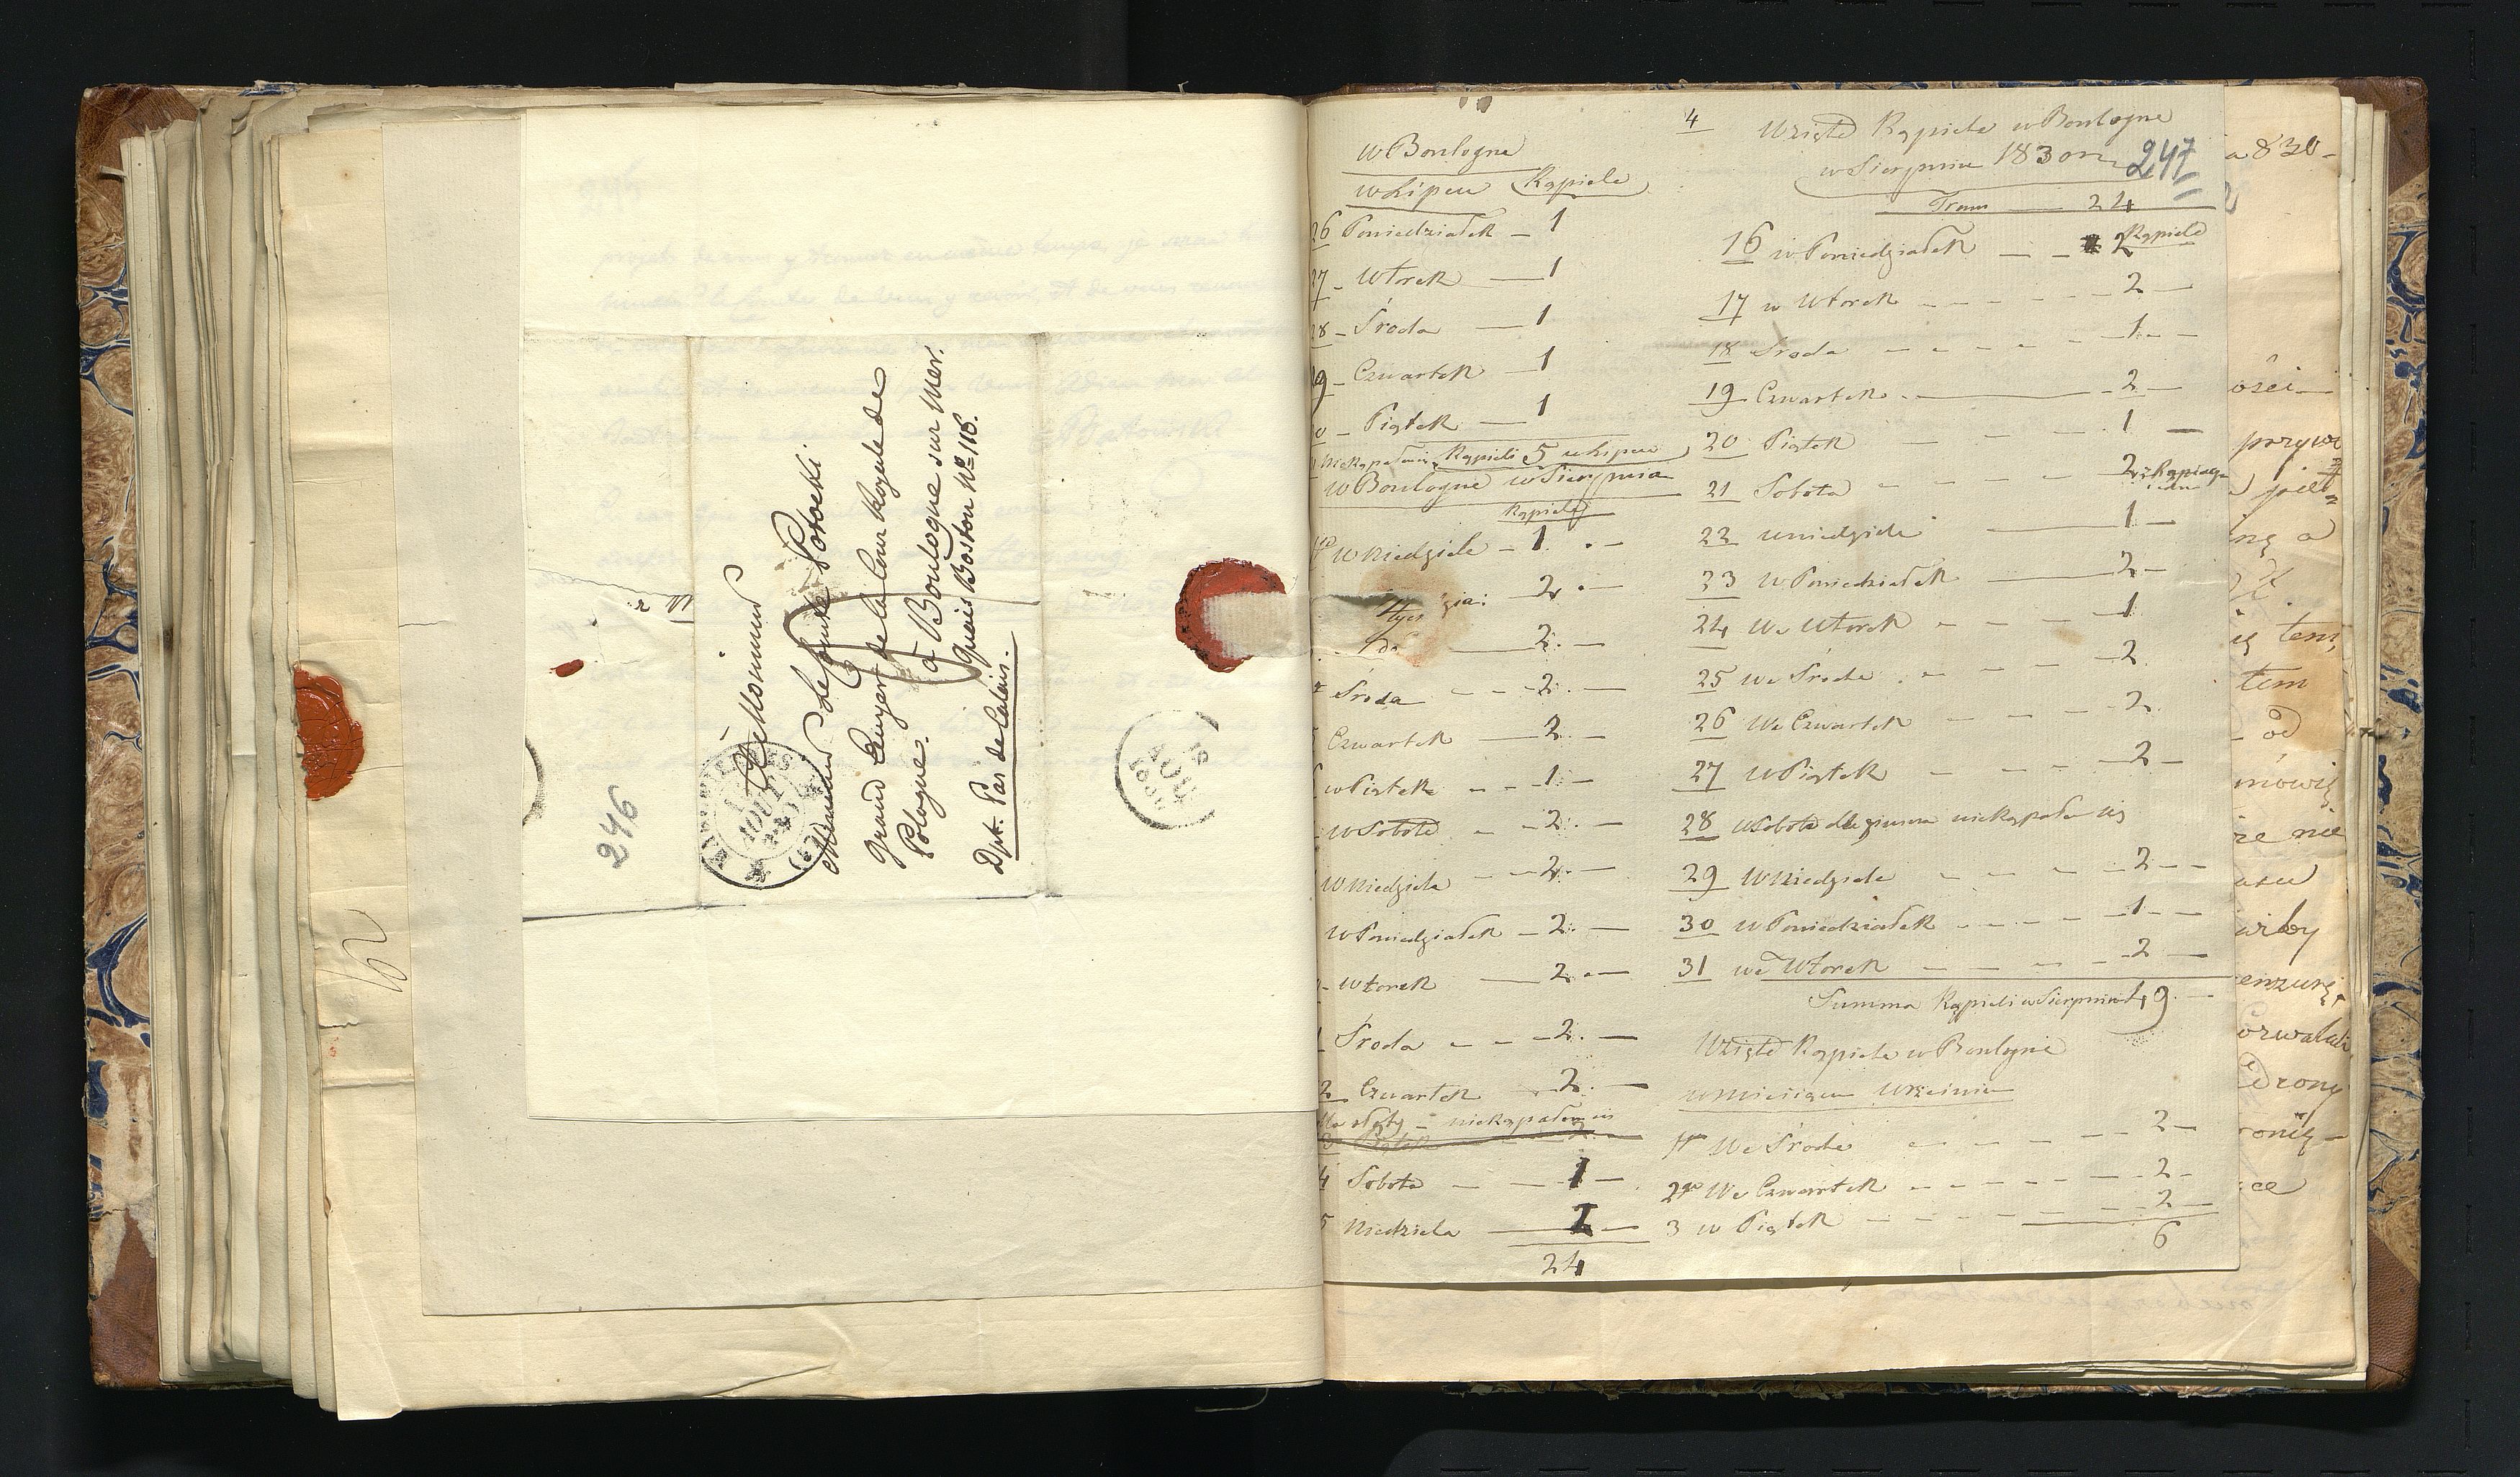 246
à Monsieur
Monsieur Le Comte Potocki
grand Ecuyer de la Cour Royale de
Pologne.
à Boulogne sur Mer.
Quais Boston No 116.
Dpt. Pas de Calais.
AOUT
w Boulogne
w Lipcu Kąpiele
26 Poniedziałek — 1
27 - Wtorek — 1
28 - Środa — 1
29 - Czwartek — 1
0 - Piątek — 1
Kąpieli 5 w Lipcu
w Boulogne w Sierpniu
Kąpiele
w Niedziele - 1 . -
2 . -
2. -
Środa - - 2. -
Czwartek — 2. -
w Piątek - - 1. -
w Sobotę - - 2. -
w Niedziele - - 2. -
w Poniedziałek - 2. -
- Wtorek — 2. -
Środa - - - 2. -
2 Czwartek - 2. -
dla słoty - niekąpałem się
3 Piątek
4 Sobota — - 1 -
5 Niedziela — 2 -
24
4
Wzięte Kąpiele w Boulogne
w Sierpniu 1830
247
Tram — 24
Kąpiele
16 w Poniedziałek - - 2
17 w Wtorek - - - - - 2 -
18 Środa - - - - - - 1 - -
19 Czwartek - — 2 -
20 Piątek - - - 1 -
21 Sobota - - - - 2
22 w niedziele — 1 -
23 w Poniedziałek — 2 -
24 We Wtorek - - - - 1
25 We Środe - - - - 2
26 We Czwartek - - - - 2
27 w Piątek - - - - 2 -
28 w Sobote dla zimna niekąpałem się
29 w Niedziele - - - - 2 - -
30 w Poniedziałek - - - - 1 - -
31 we Wtorek - - - - 2 -
Summa Kąpieli w Sierpniu 49 -
Wzięte Kąpiele w Boulogne
w Miesiącu Wrześniu
We Środe - - - - 2 -
We Czwartek - - - - 2 -
3 w Piątek - - - - 2 -
6
a 830-
ości
tem
tem
od
mówię
że nie